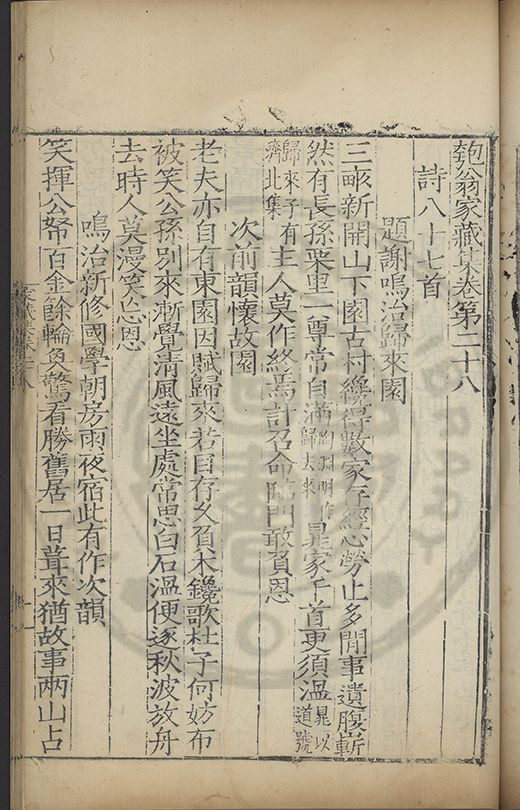 匏翁家藏集卷第二十八
詩八十七首
題謝鳴治歸來園
三畝新開山下園古村纔得數家存經心勞止多閒事遺腹嶄
然有長孫栗里一尊常自滿淵明作歸去來晁家千首更須溫晁以道號
歸來子有濟北集主人莫作終焉計召命臨門敢負恩
次前韻懷故園
老夫亦自有東園因賦歸來若目存久負木鑱歌杜子何妨布
被笑公孫別來漸覺清風遠坐處常思白石溫便逐秋波放舟
去時人莫漫笑忘恩
鳴治新修國學朝房雨夜宿此有作次韻
笑揮公帑百金餘輪奐驚看勝舊居一日葺來猶故事两山占